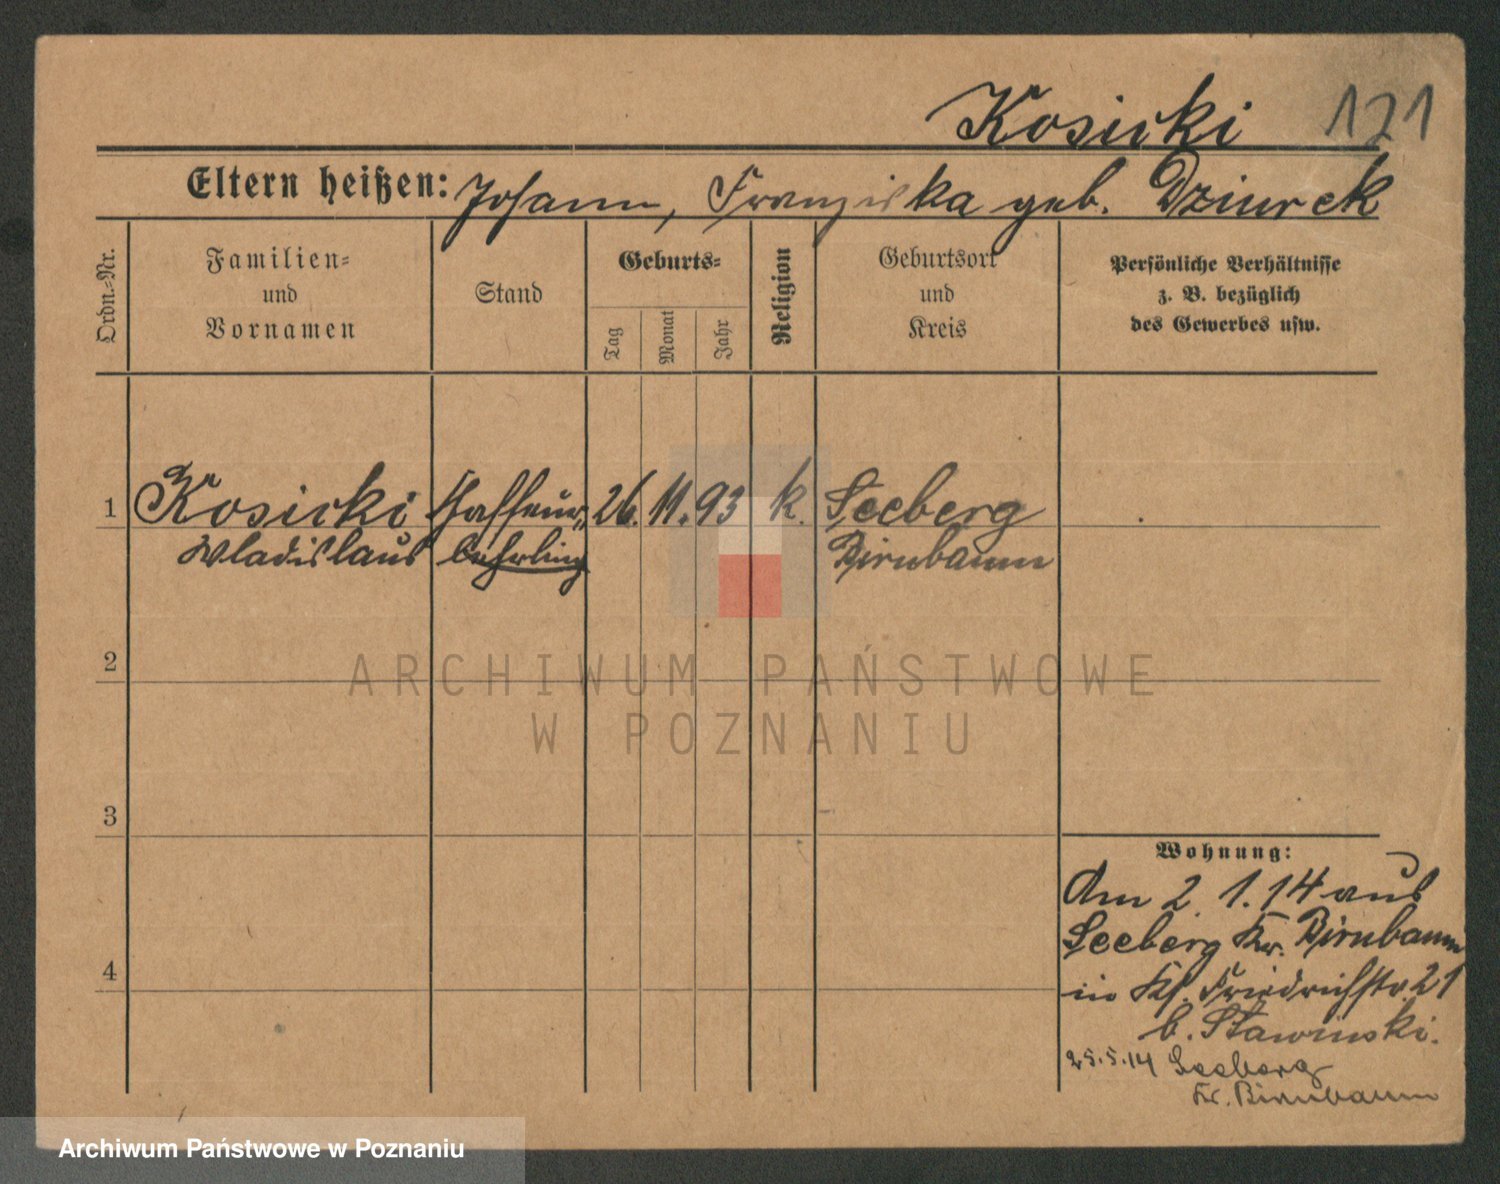 Kosicki 121
Eltern heißen: Johann, Franziska geb. Dziurek
Ordn.=Nr.
Familien=
und
Vornamen
Stand
Geburts=
Tag
Monat
Jahr
Religion
Geburtsort
und
Kreis
Persönliche Verhältnisse
z. B. bezüglich
des Gewerbes usw.
1 Kosicki 26. 11. 93 k. Seeberg
Wladislaus Lehrling Birnbaum
2
ARCHIWUM PAŃSTWOWE
W POZNANIU
3
Wohnung:
Am 2. 1. 14 aus
Seeberg Kr. Birnbaum
in Friedrichstr 21
b. Stawinski.
4
25.5.14 Seeberg
Kr. Birnbaum
Archiwum Państwowe w Poznaniu